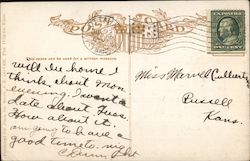 POST CARD
This space can be used for a written message.
will be home I
think about Mon.
evening. I want a
date about Tues.
How about it.
am going to have a
good time to-night
Miss Merrell
Russell
Kans.